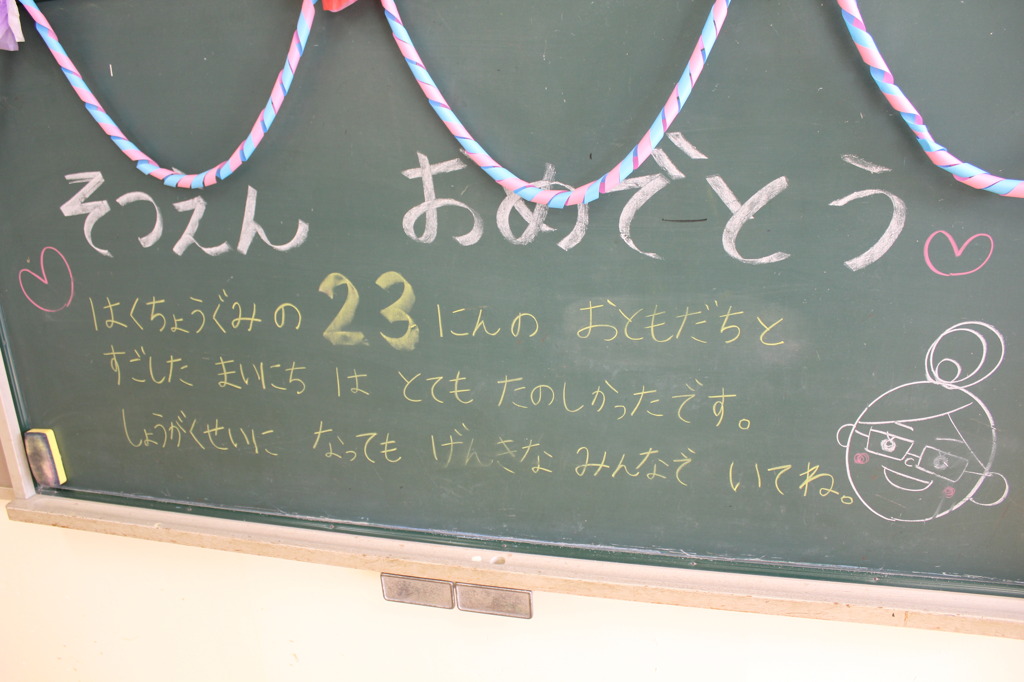 そつえん おめでとう
はくちょうぐみの 23 にんの おともだちと
すごした まいにち は とても たのしかったです。
しょうがくせいに なっても げんきな みんなで いてね。